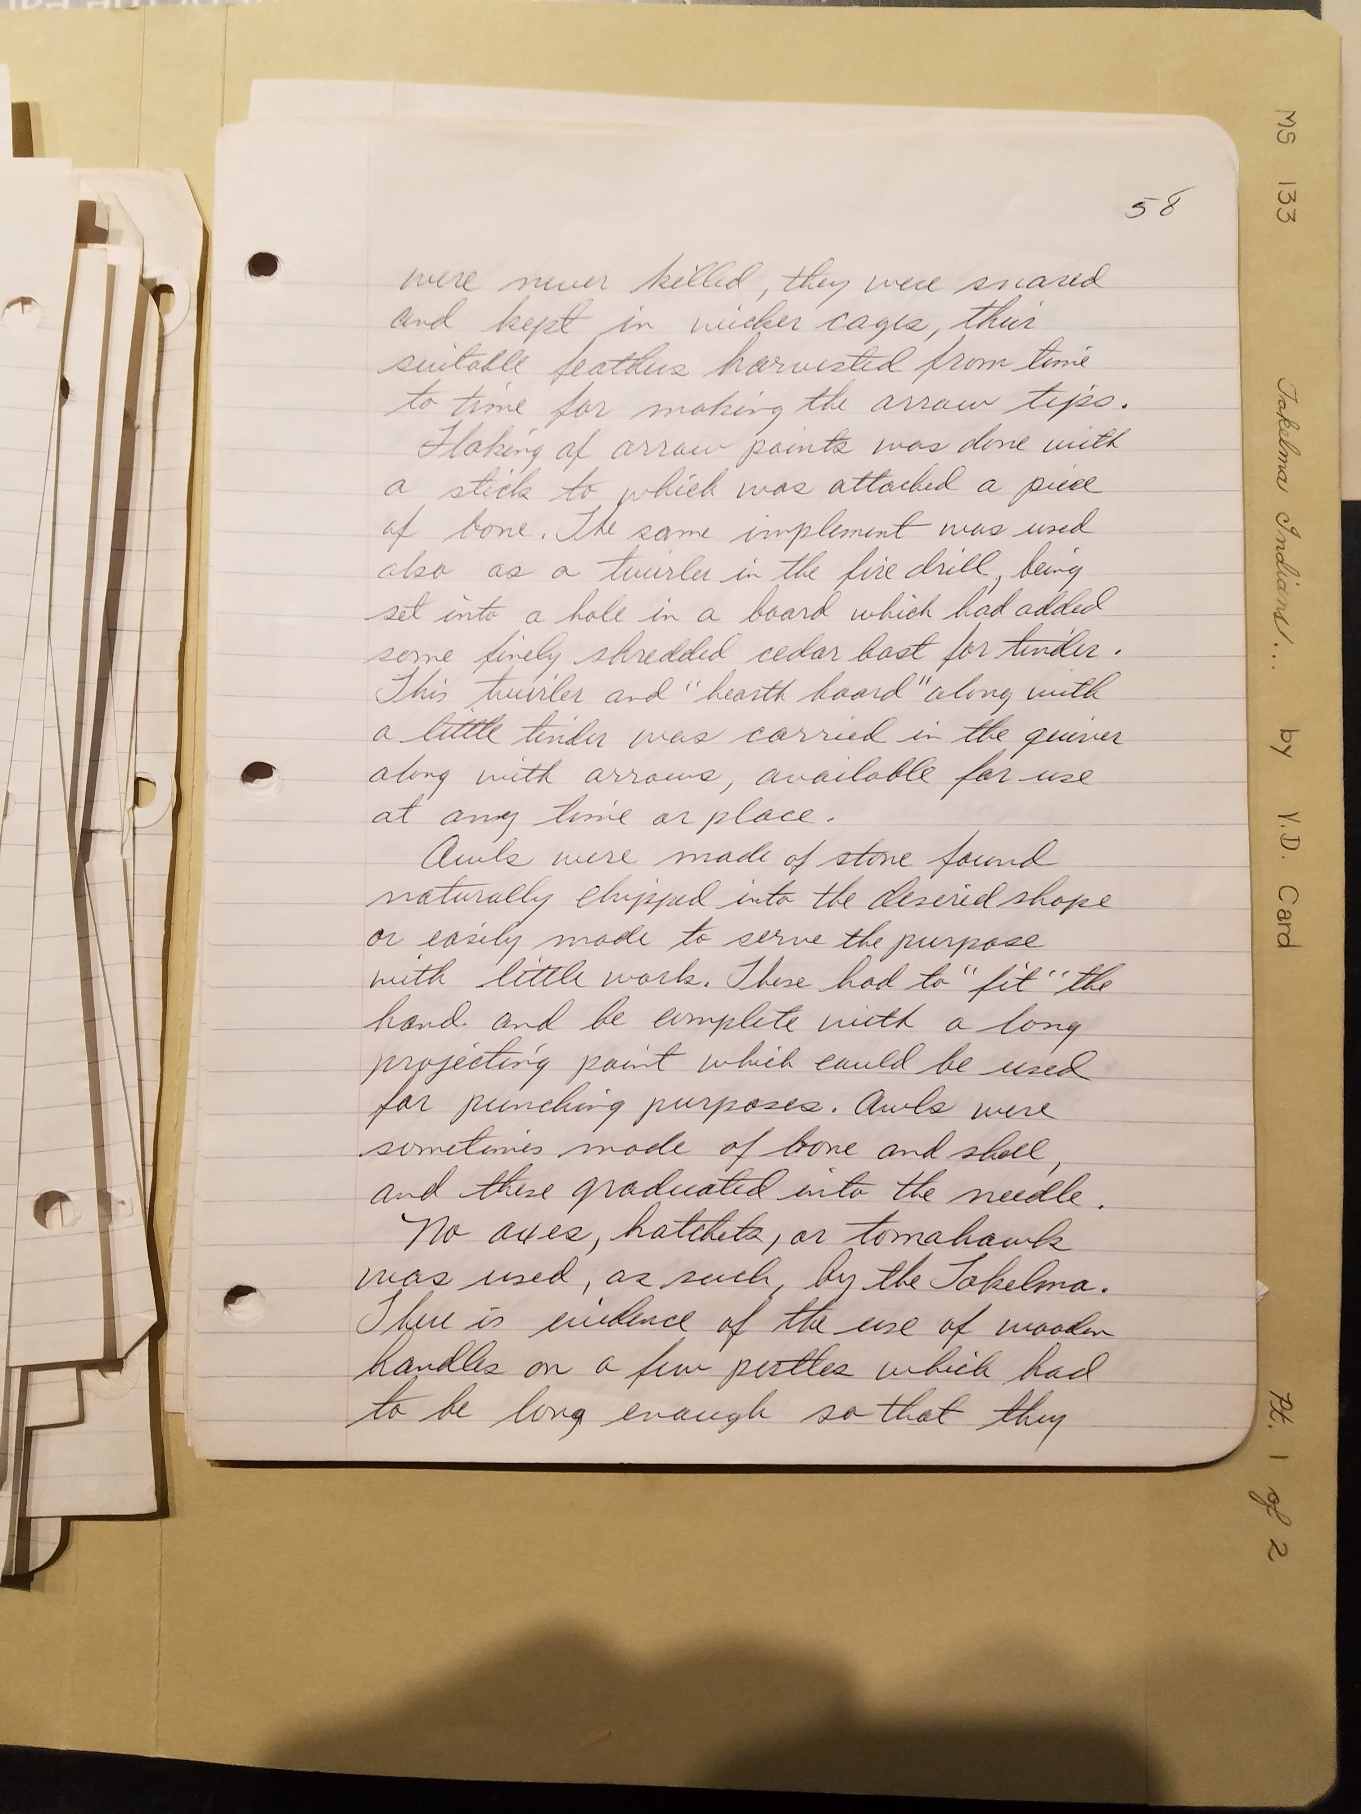 58
were never killed, they were snared
and kept in wicker cages, their
suitable feathers harvested from time
to time for making the arrow tips.
Flaking of arrow points was done with
a stick to which was attached a piece
of bone. The same implement was used
also as a twirler in the fire drill, being
set into a hole in a board which had added
some finely shredded cedar bast for tinder.
This twirler and "hearth board" along with
a little tinder was carried in the quiver
along with arrows, available for use
at any time or place.
Awls were made of stone found
naturally chipped into the desired shape
or easily made to serve the purpose
with little work. These had to "fit" the
hand and be complete with a long
projecting point which could be used
for punching purposes. Awls were
sometimes made of bone and shell,
and these graduated into the needle.
No axes, hatchets, or tomahawks
was used, as such, by the Takelma.
There is evidence of the use of wooden
handles on a few pestles which had
to be long enough so that they
MS 133 Takelma Indians... by Y.D. Card Pt. 1 of 2